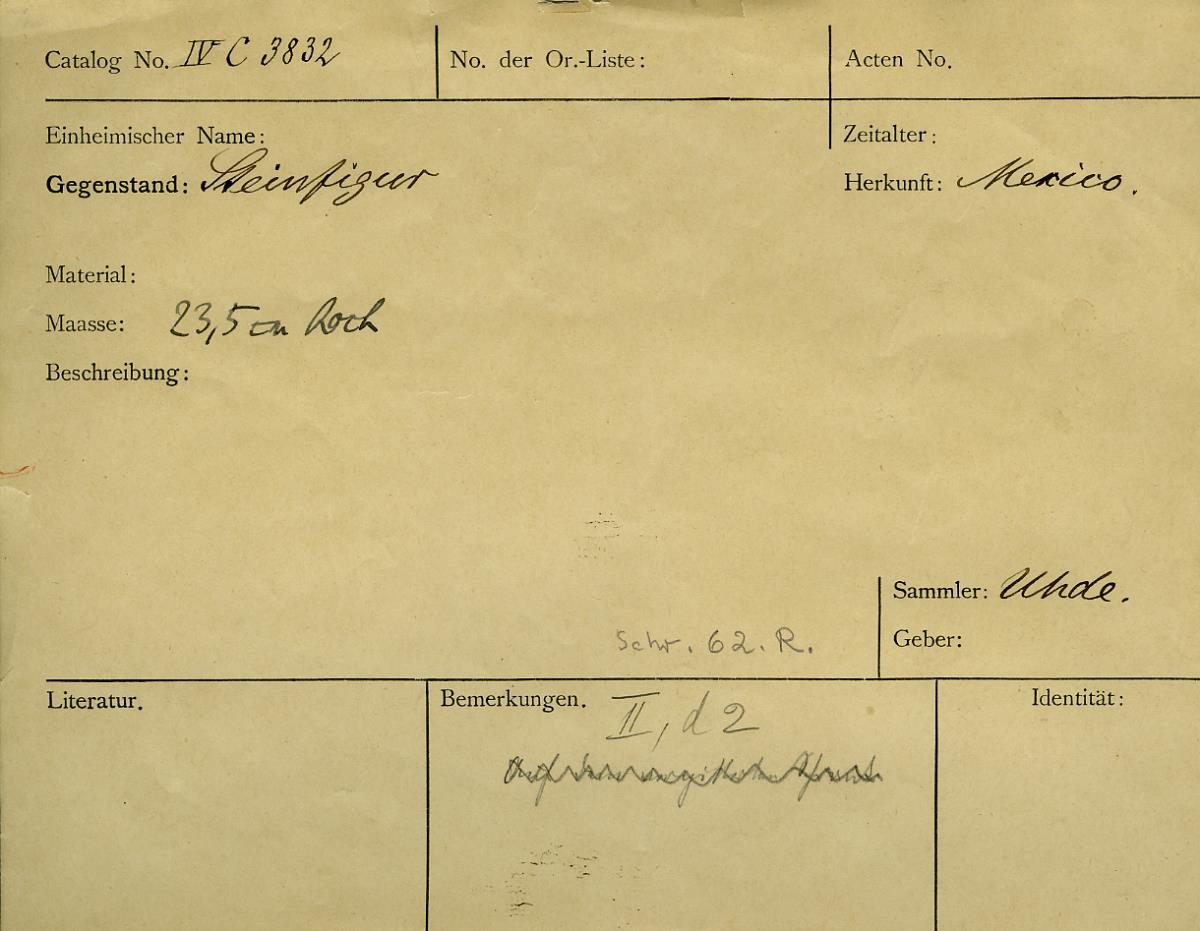 Catalog No. IV C 3832 No. der Or.-Liste: Acten No.
Einheimischer Name: Zeitalter:
Gegenstand: Steinfigur Herkunft: Mexico.
Material:
Maasse: 23,5 cm hoch
Beschreibung:
Sammler: Uhde.
Schr. 62. R. Geber:
Literatur. Bemerkungen. Identität:
II, d 2